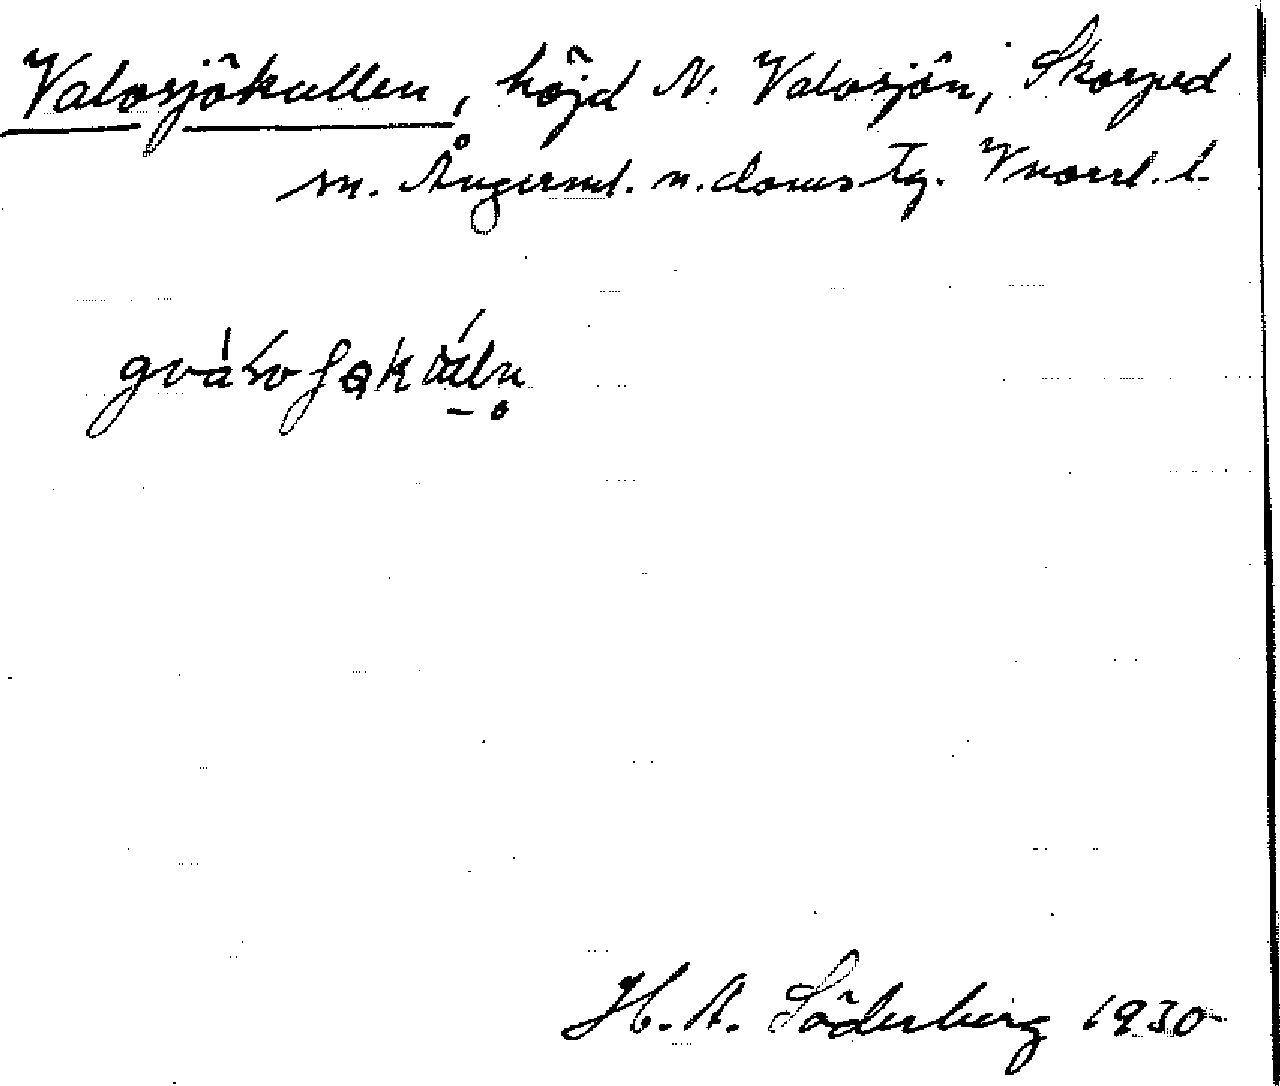 Valasjökullen, höjd N. Valasjön, Skorped
sn. Ångerml. n. domstg. Vnorrl. l.
H. A. Söderberg 1930